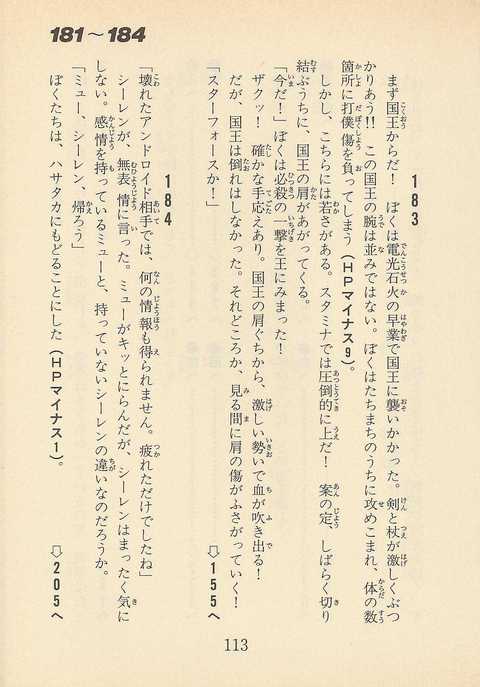 181〜184
183
まず国王からだ！　ぼくは電光石火の早業で国王に襲いかかった。剣と杖が激しくぶつ
かりあう!!　この国王の腕は並みではない。ぼくはたちまちのうちに攻めこまれ、体の数
箇所に打僕傷を負ってしまう（HPマイナス9）。
しかし、こちらには若さがある。スタミナでは圧倒的に上だ！　案の定、しばらく切り
結ぶうちに、国王の肩があがってくる。
「今だ！」ぼくは必殺の一撃を王にみまった！
ザクッ！　確かな手応えあり。国王の肩ぐちから、激しい勢いで血が吹き出る！
だが、国王は倒れはしなかった。それどころか、見る間に肩の傷がふさがっていく！
「スターフォースか！」
⇨155へ
184
「壊れたアンドロイド相手では、何の情報も得られません。疲れただけでしたね」
シーレンが、無表情に言った。ミューがキッとにらんだが、シーレンはまったく気に
しない。感情を持っているミューと、持っていないシーレンの違いなのだろうか。
「ミュー、シーレン、帰ろう」
ぼくたちは、ハサタカにもどることにした（HPマイナス1）。
⇨205へ
113